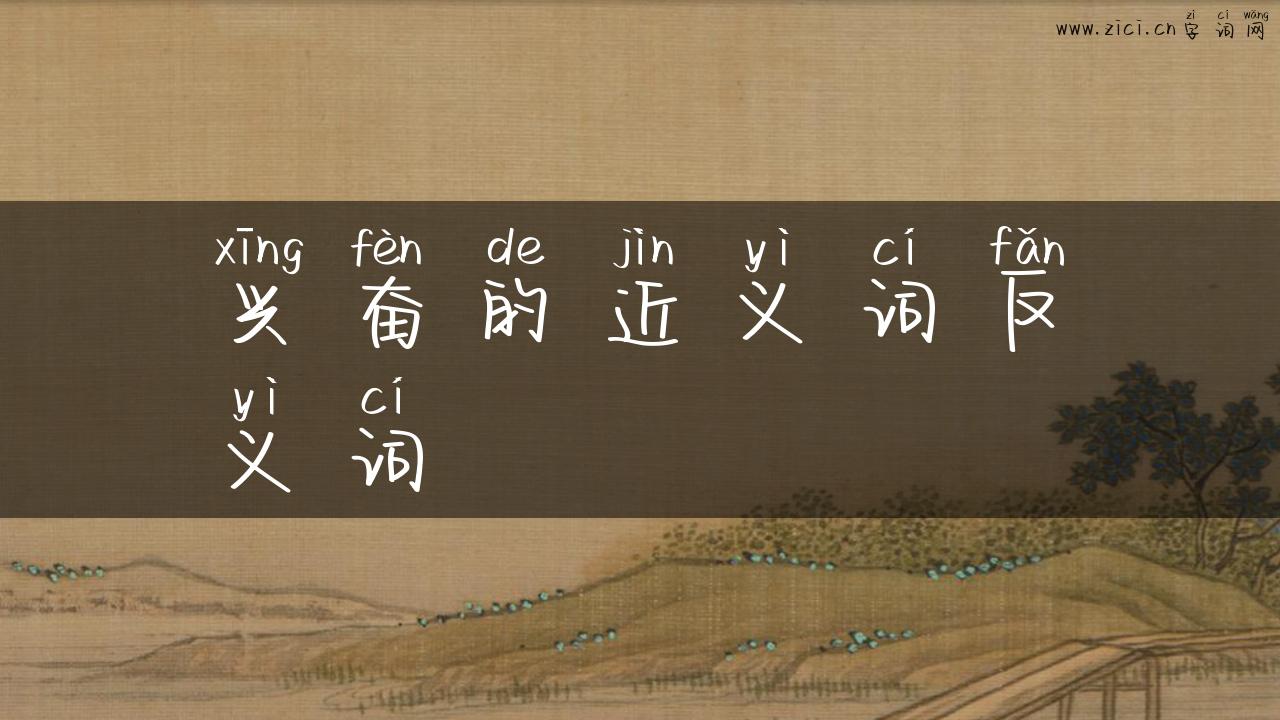 zì cí wǎng
www.zici.cn字词网
xīng fèn de jìn yì cí fǎn
兴奋的近义词反
yì cí
义词